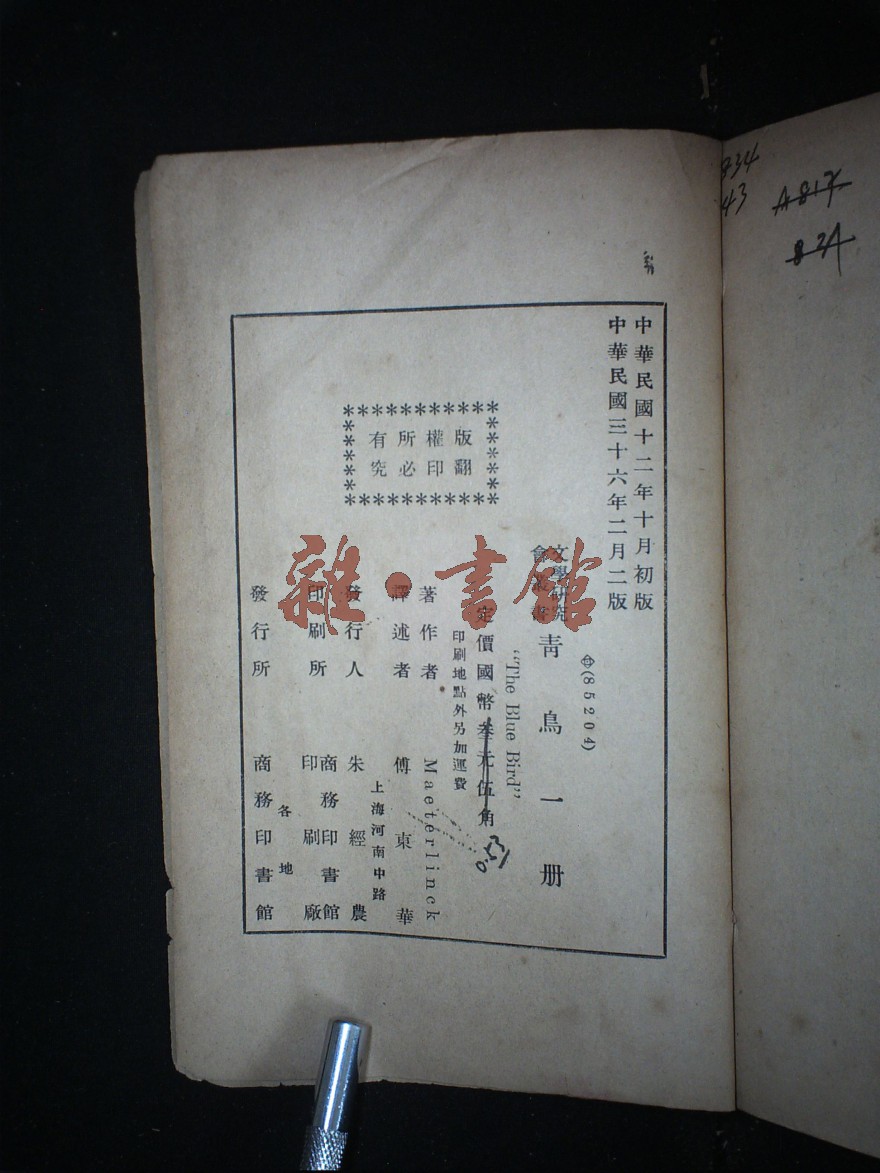 中華民國十二年十月初版
中華民國三十六年二月二版
(85204)
文學研究
會叢書
靑鳥一册
“The Blue Bird”
定價國幣叁元伍角
印刷地點外另加運費
0.53
版權所有
翻印必究
著作者 Maeterlinck
譯述者 傅東華
發行人 朱經農
上海河南中路
印刷所 商務印書館
印刷廠
發行所 各地
商務印書館
雜·書館
834
43
A817
82A